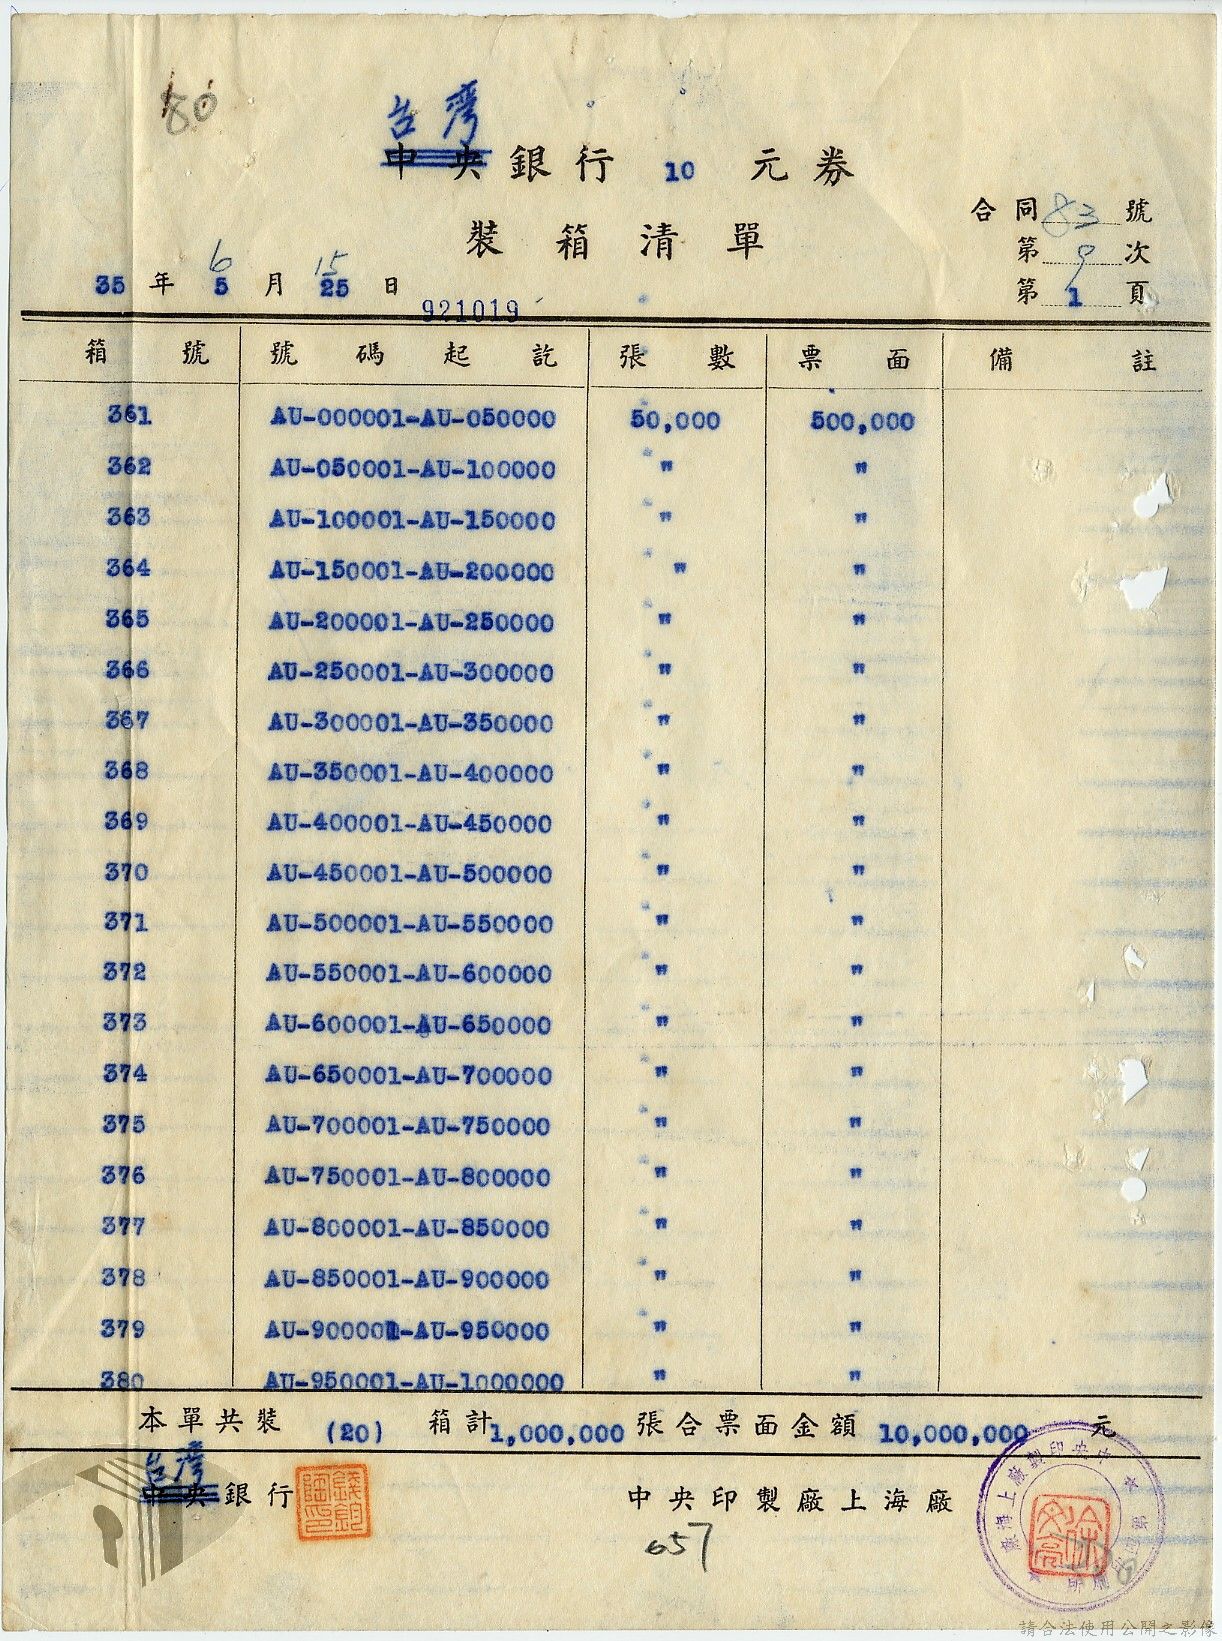 80
台灣
中央銀行 10 元券
裝箱清單
合同 83 號
第 9 次
第 1 頁
6 15
35 年 5 月 25 日
921019
箱號 號碼起訖 張數 票面 備註
361 AU-000001-AU-050000 50,000 500,000
362 AU-050001-AU-100000 " "
363 AU-100001-AU-150000 " "
364 AU-150001-AU-200000 " "
365 AU-200001-AU-250000 " "
366 AU-250001-AU-300000 " "
367 AU-300001-AU-350000 " "
368 AU-350001-AU-400000 " "
369 AU-400001-AU-450000 " "
370 AU-450001-AU-500000 " "
371 AU-500001-AU-550000 " "
372 AU-550001-AU-600000 " "
373 AU-600001-AU-650000 " "
374 AU-650001-AU-700000 " "
375 AU-700001-AU-750000 " "
376 AU-750001-AU-800000 " "
377 AU-800001-AU-850000 " "
378 AU-850001-AU-900000 " "
379 AU-900001-AU-950000 " "
380 AU-950001-AU-1000000 " "
本單共裝 (20) 箱計 1,000,000 張合票面金額 10,000,000 元
台灣
中央銀行 中央印製廠上海廠
057
中央印製廠上海廠
請合法使用公開之影像